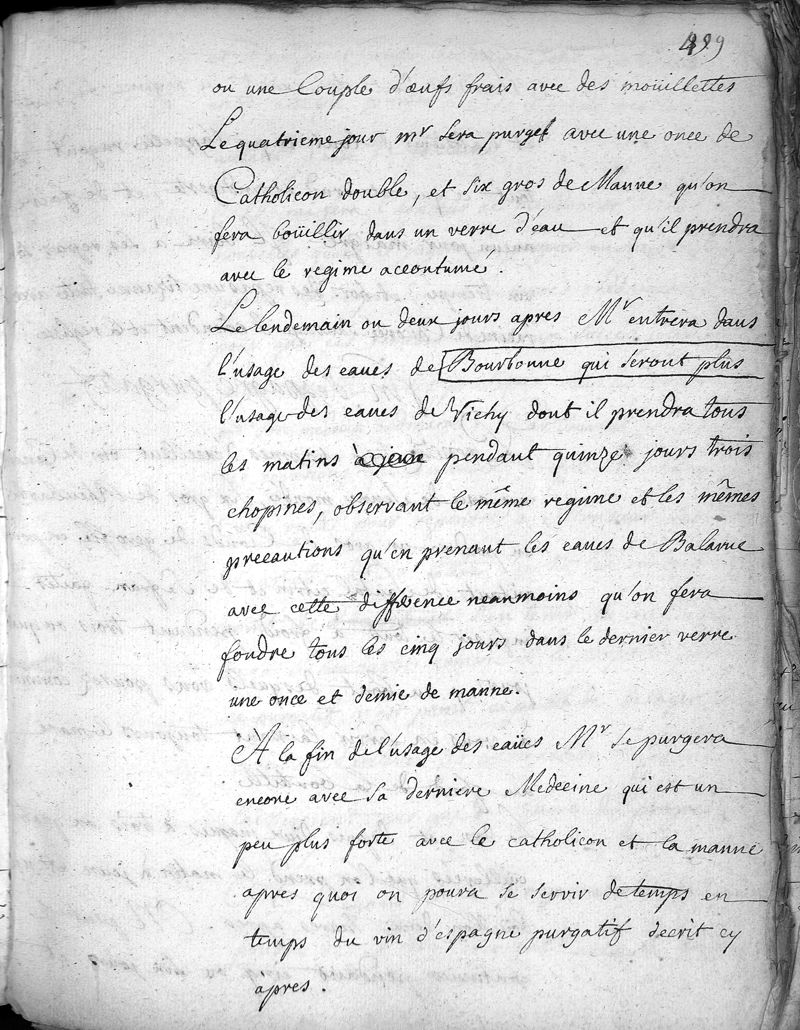 499
ou une Couple d'œufs frais avec des moüillettes
Le quatrieme jour mr sera purgé avec une once de
Catholicon double, et six gros de Manne qu'on
fera boüillir dans un verre d'eau et qu'il prendra
avec le regime accoutumé.
Le lendemain ou deux jours apres Mr entrera dans
l'usage des eaues de Bourbonne qui seront plus
l'usage des eaues de Vichy dont il prendra tous
les matins pendant quinze jours trois
chopines, observant le même regime et les mêmes
precautions qu'en prenant les eaues de Balarue
avec cette difference neanmoins qu'on fera
fondre tous les cinq jours dans le dernier verre
une once et demie de manne.
A la fin de l'usage des eaües Mr se purgera
encore avec sa derniere Medecine qui est un
peu plus forte avec le catholicon et la manne
apres quoi on poura se servir de temps en
temps du vin d'espagne purgatif decrit cy
apres.